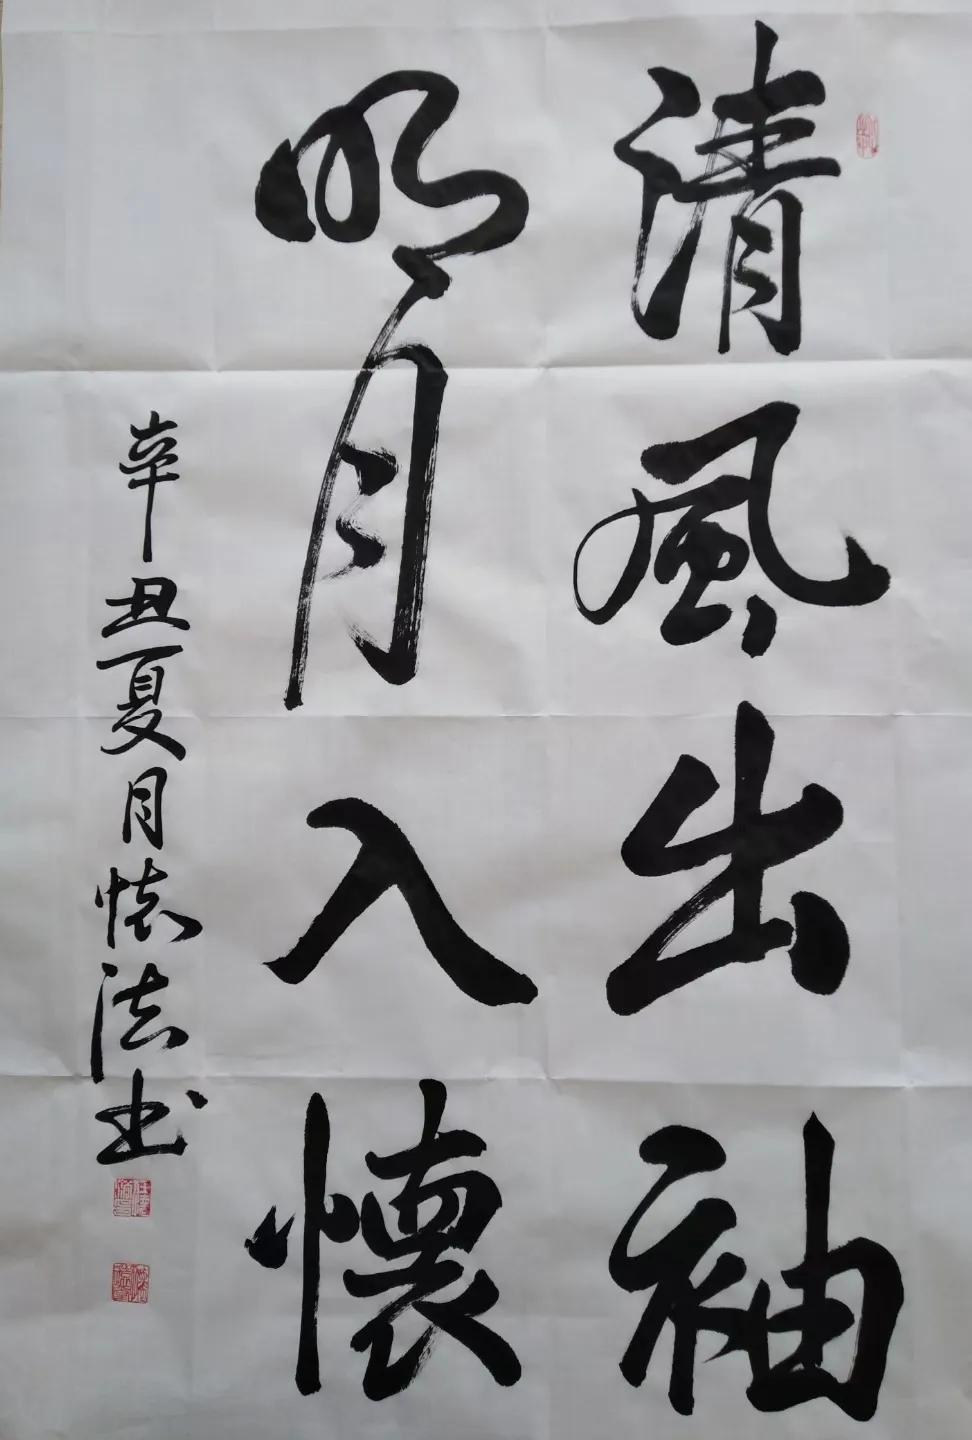 清風出袖
明月入懷
辛丑夏月懷法书